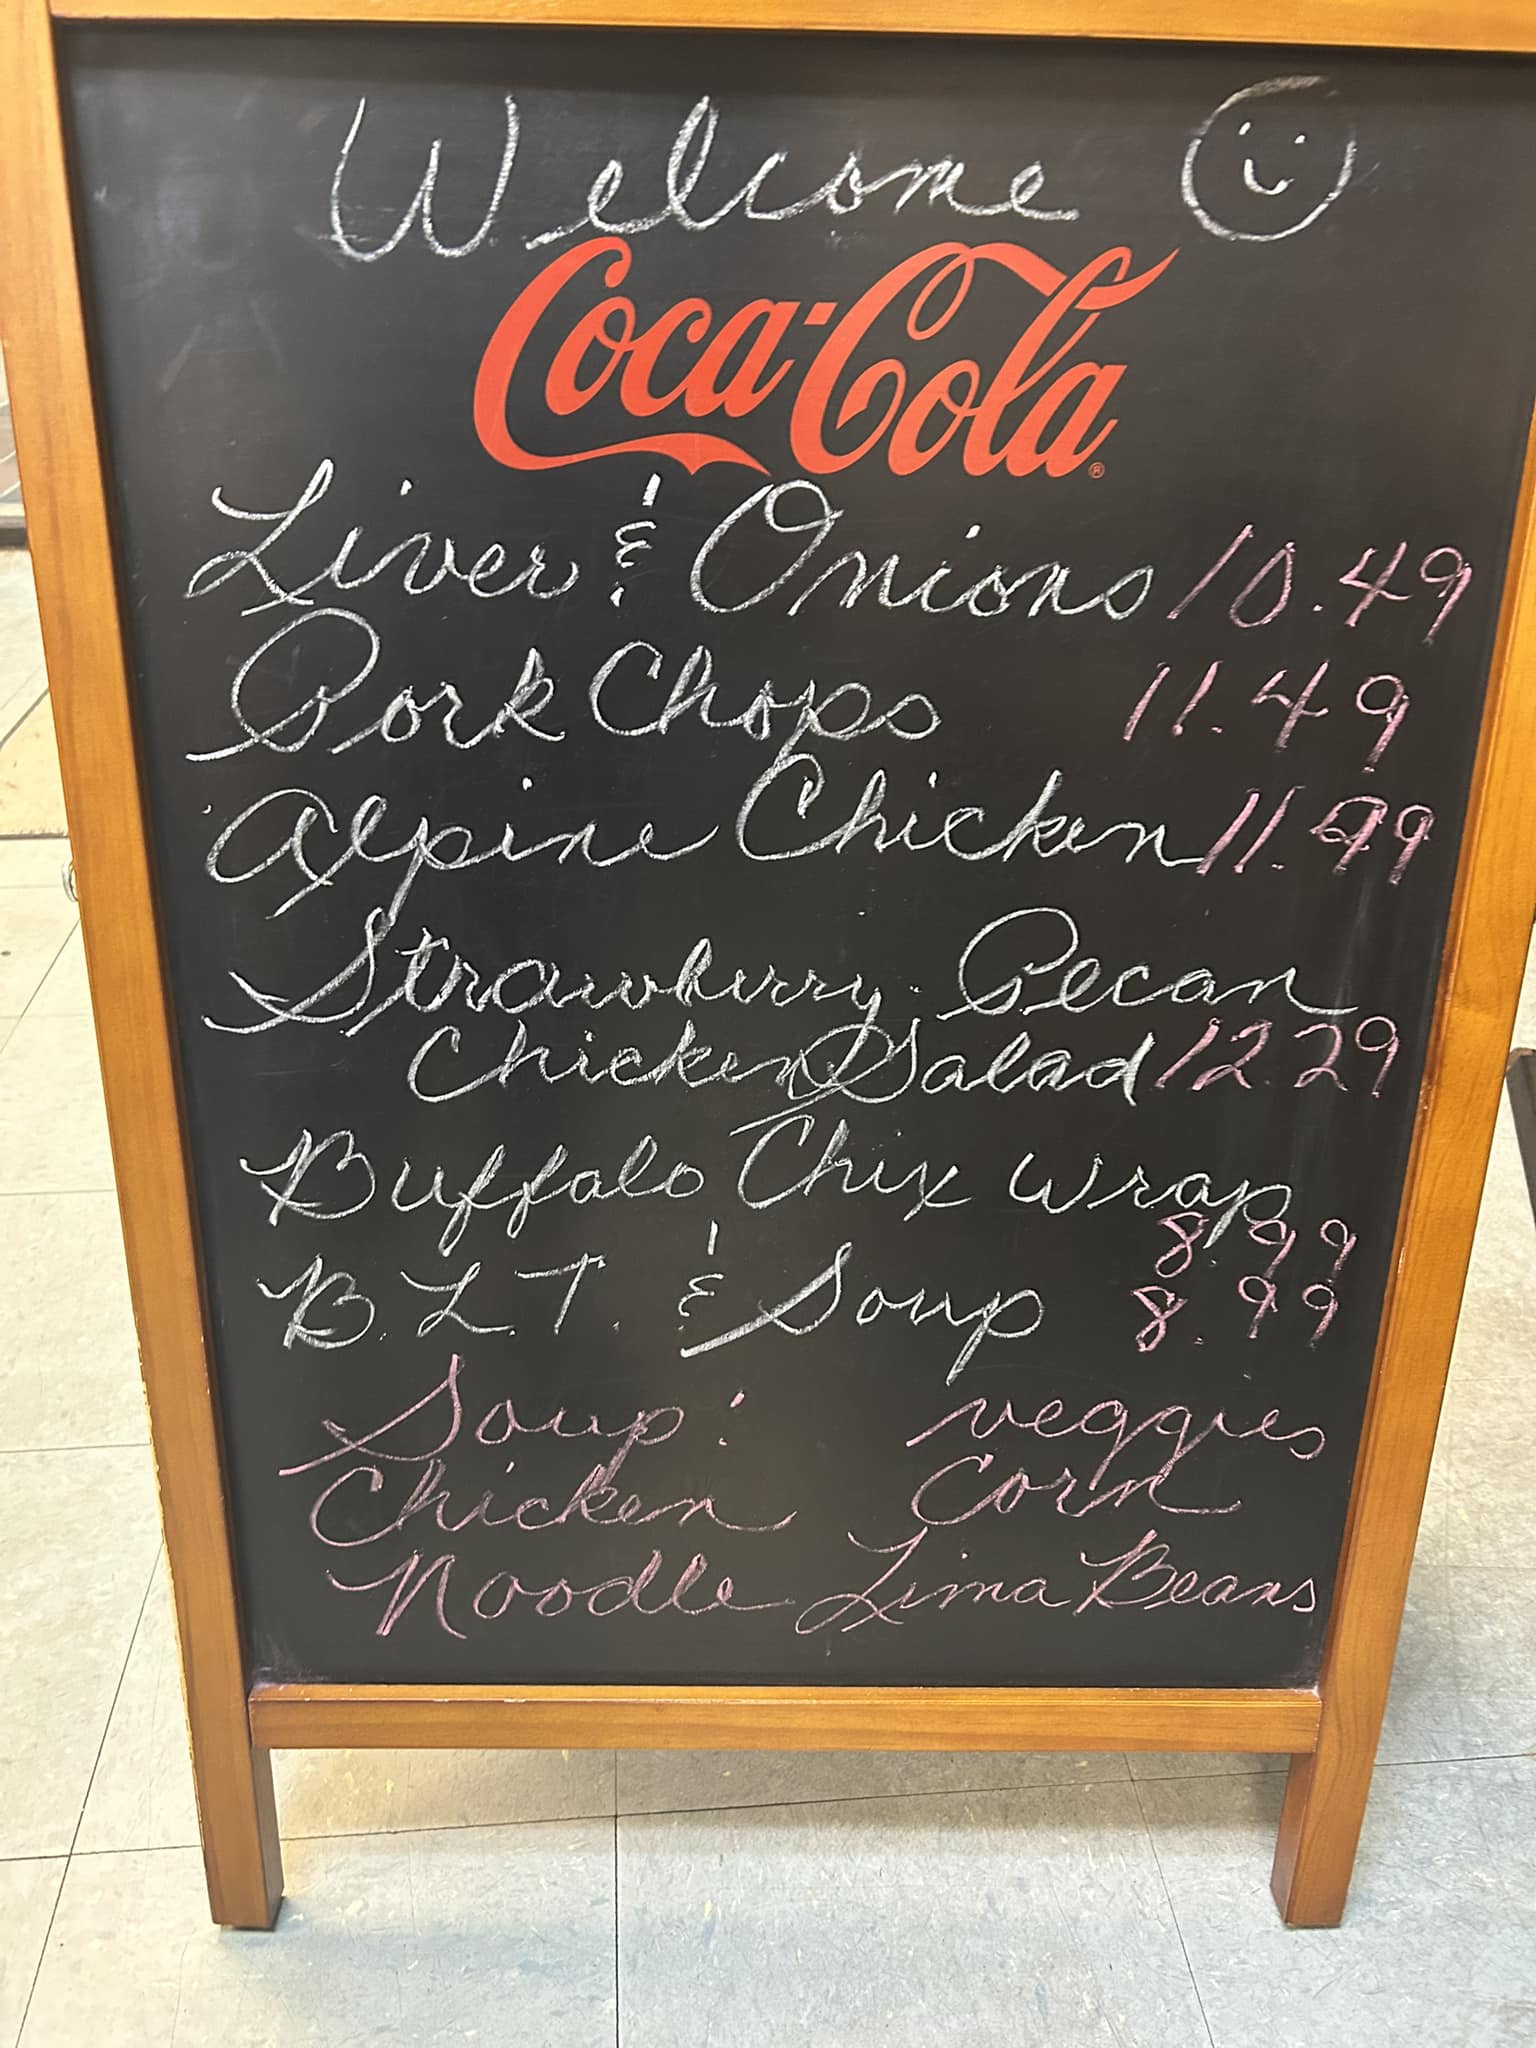 Welcome
Coca-Cola
Liver & Onions 10.49
Pork Chops 11.49
Alpine Chicken 11.99
Strawberry Pecan
Chicken Salad 12.29
Buffalo Chix Wrap
8.99
B.L.T. & Soup 8.99
Soup: veggies
Chicken Corn
Noodle Lima Beans